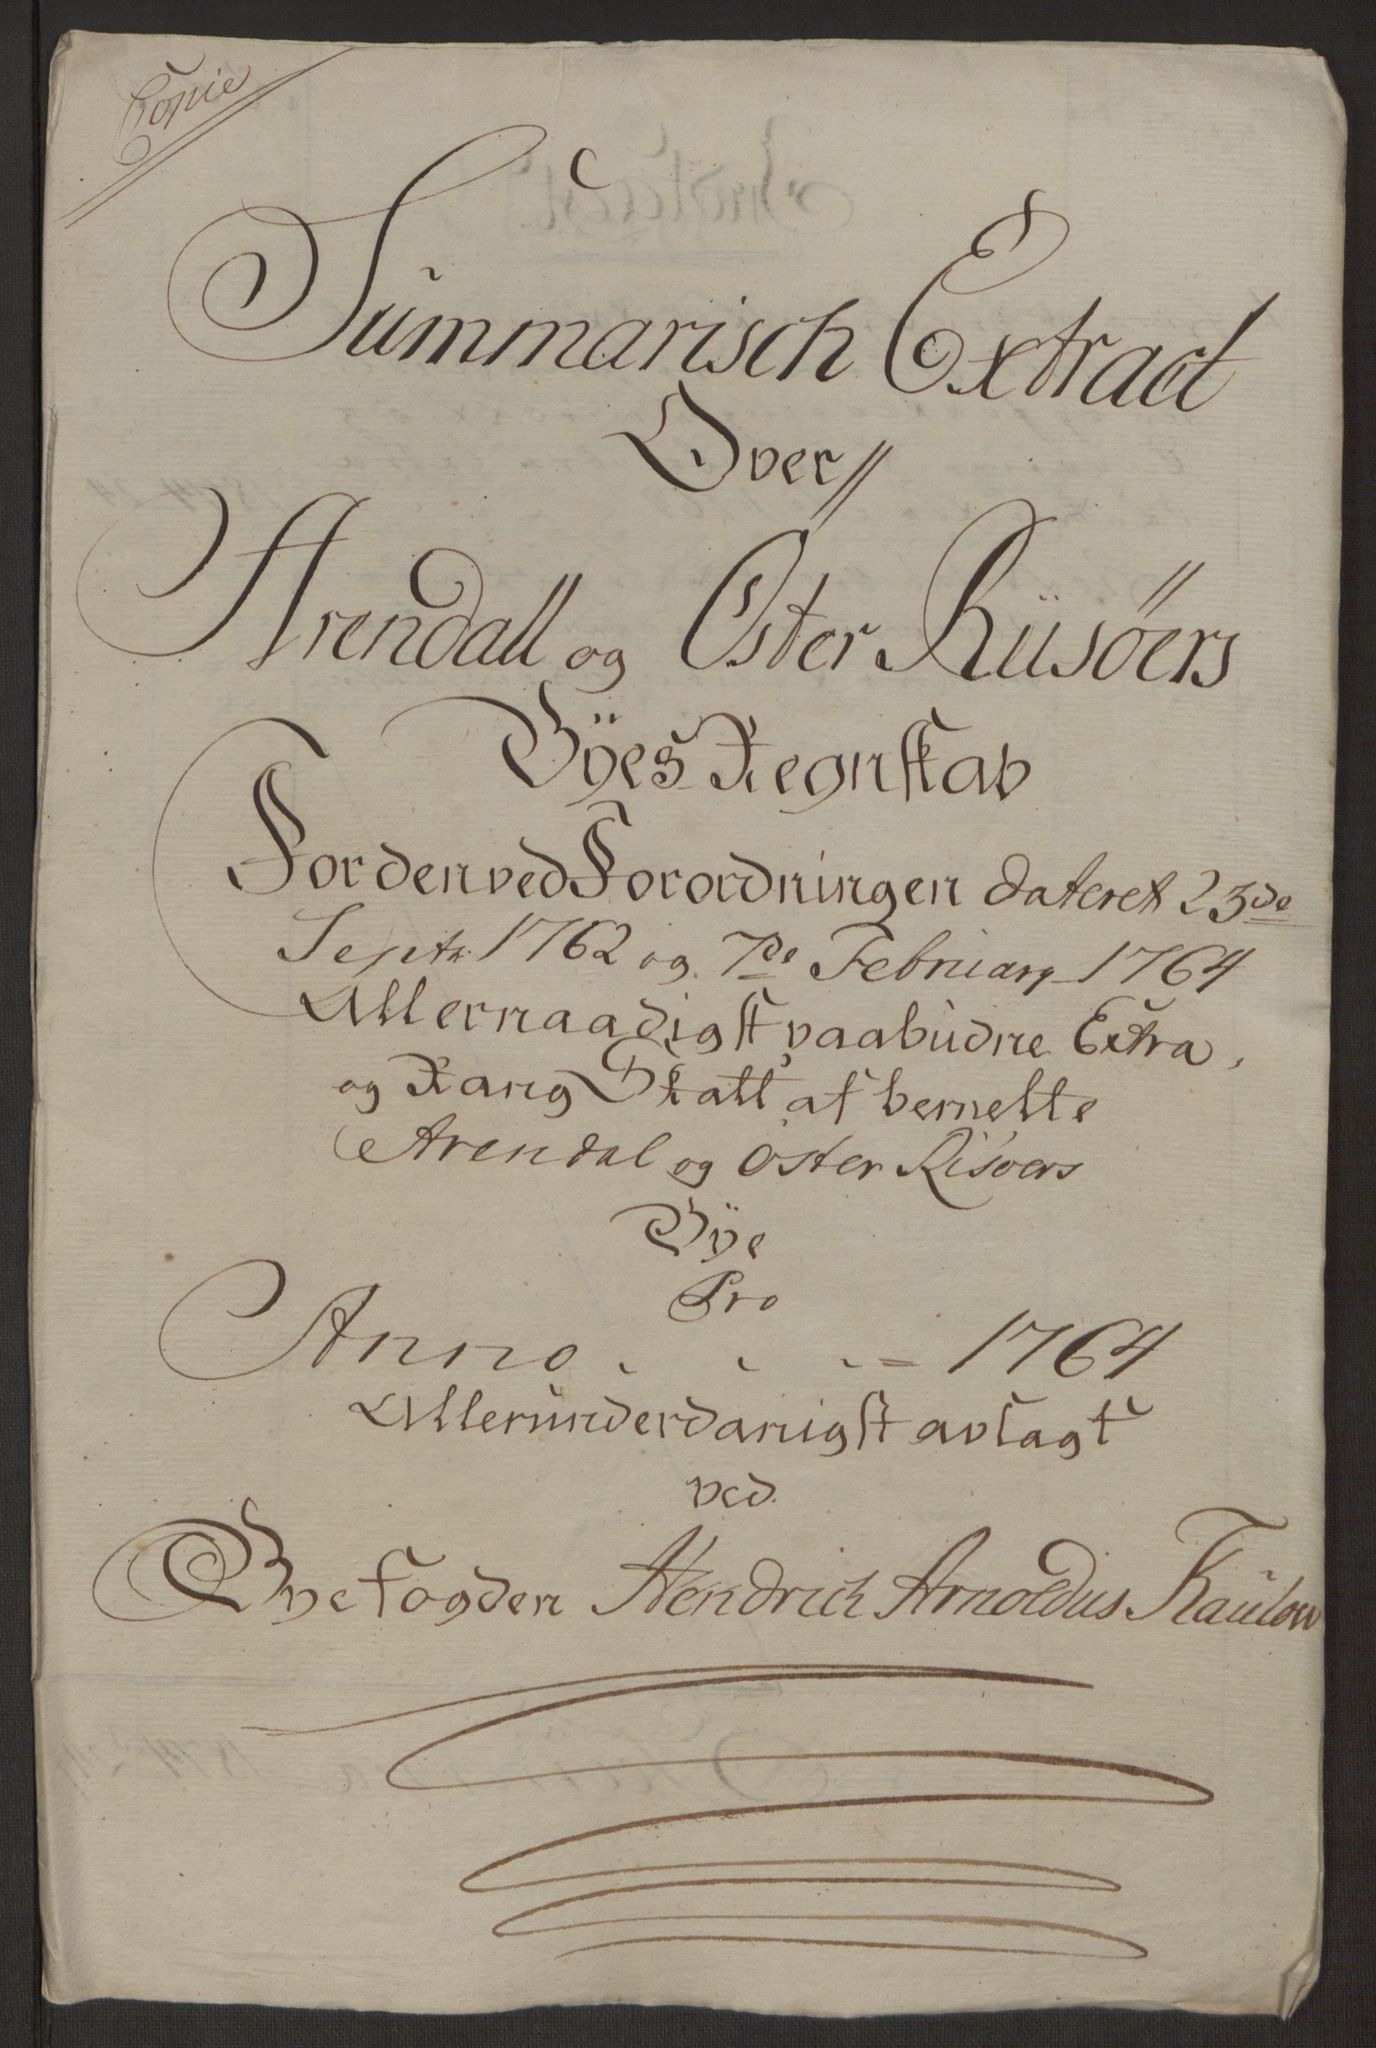 Copie
Summarisch Extract
Over
Arendall og Öster Riisöers
Byes Regnskab
For den ved Forordningen dateret 23de
Septr. 1762 og 7de Februarij 1764
Allernaadigst paabudne Extra
og Rang Skatt af bemelte
Arendal og Öster Risöers
Bÿe
Pro
Anno 1764
Allerunderdanigst avlagt
ved
Byefogden Hendrich Arnoldus Thaulow